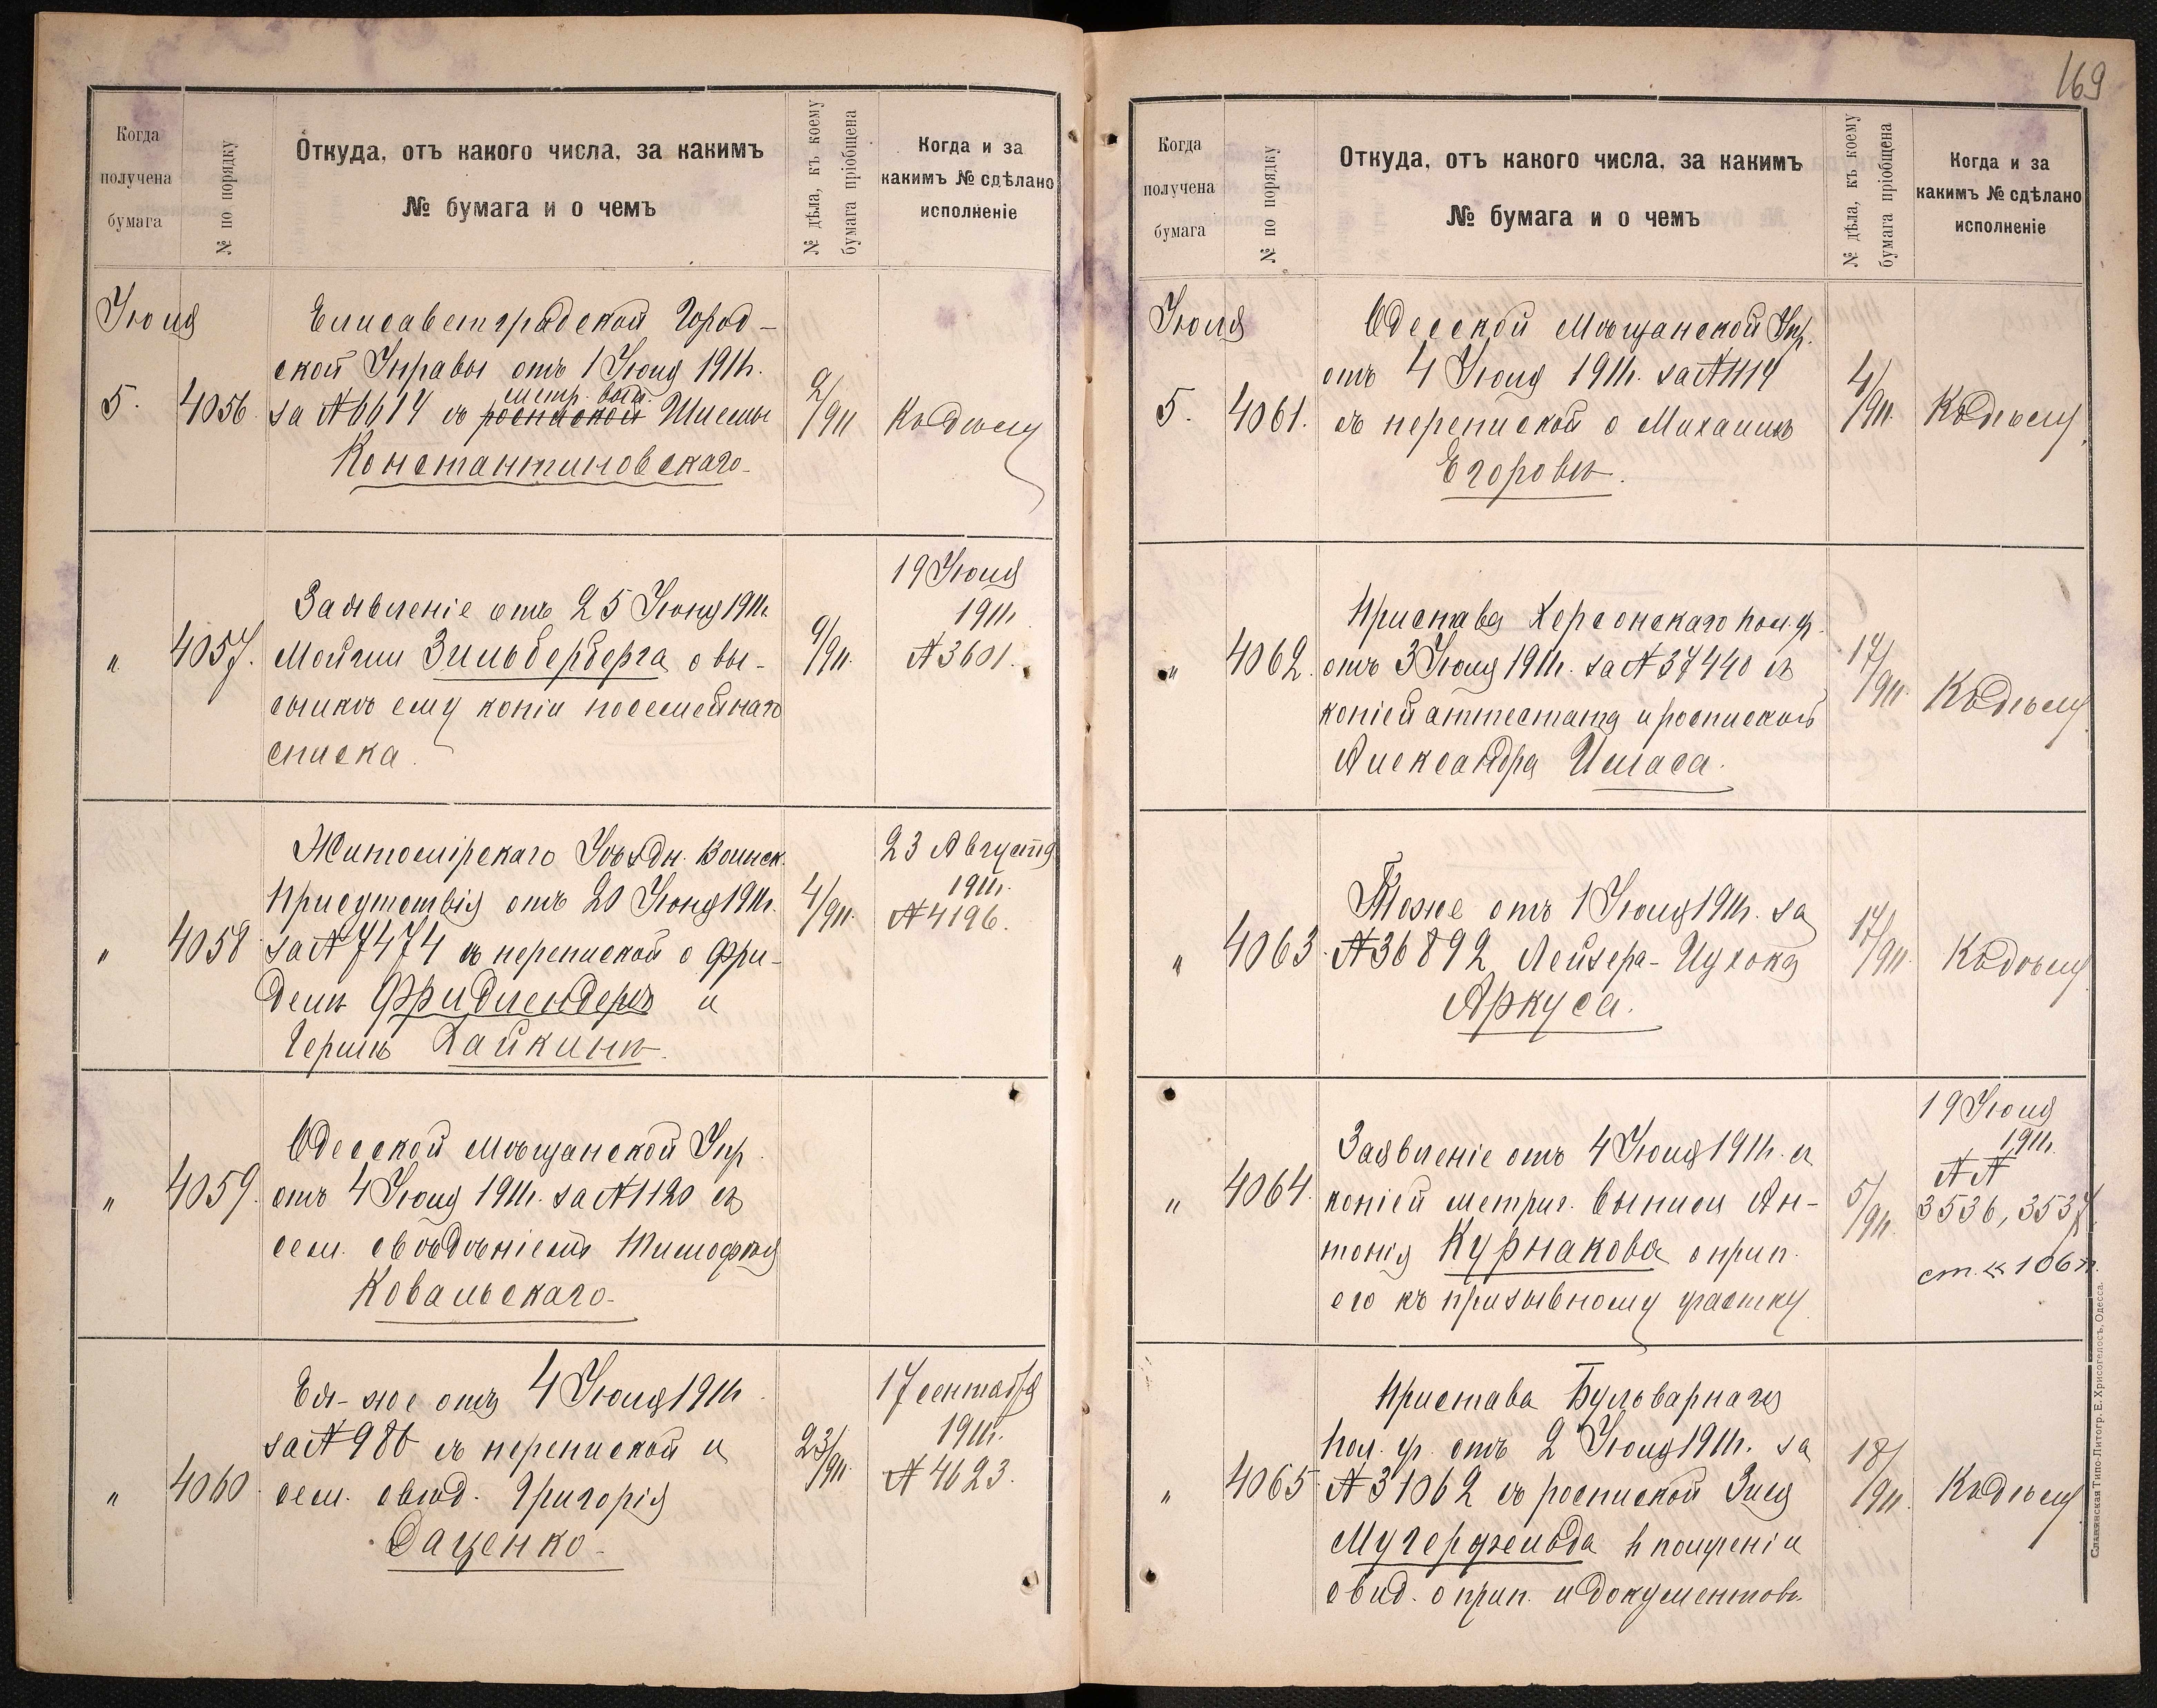 Когда
получена
бумага
№ по порядку
Откуда, отъ какого числа, за какимъ
№ бумага и о чемъ
№ дѣла, къ коему
бумага пріобщена
Когда и за
какимъ № сдѣлано
исполненіе
Іюля
5.
4056.
Елисаветградской Город-
ской Управы отъ 1 Іюля 1911г.
метр. вып.
за № 6614 съ роспиской Шлемы
Константиновскаго
2/911
Къ дѣлу
"
4057.
Заявленіе отъ 25 Іюня 1911г.
Мойши Зильберберга о вы-
сылкѣ ему копіи посемейнаго
списка.
9/911.
19 Іюля
1911
№ 3601.
"
4058
Житомірскаго Уѣздн. Воинск.
Присутствія отъ 20 Іюня 1911г.
за № 7474 съ перепиской о Фри-
делѣ Фридлендерѣ и
Гершѣ Хайкинѣ.
4/911.
23 Августа
1911г.
№ 4196.
"
4059.
Одесской Мѣщанской Упр.
отъ 4 Іюля 1911г. за № 1120 съ
сем. свѣдѣніемъ Тимофея
Ковальскаго
"
4060.
Ея-же отъ 4 Іюля 1911г.
за № 986 съ перепиской и
сем. свѣд. Григорія
Даценко
23/911.
17 сентября
1911г.
№ 4623.
169
Когда
получена
бумага
№ по порядку
Откуда, отъ какого числа, за какимъ
№ бумага и о чемъ
№ дѣла, къ коему
бумага пріобщена
Когда и за
какимъ № сдѣлано
исполненіе
Іюля
5.
4061.
Одесской Мѣщанской Упр.
отъ 4 Іюля 1911г. за № 1114
съ перепиской о Михаилѣ
Егоровѣ.
4/911.
Къ дѣлу
"
4062.
Пристава Херсонскаго пол. у.
отъ 3 Іюля 1911г. за № 37440 съ
копіей аттестата и роспиской
Александра Имаса.
17/911.
Къ дѣлу
"
4063.
Тоже отъ 1 Іюля 1911г. за
№ 36892 Лейзера-Ицхока
Аркуса.
17/911.
Къ дѣлу
"
4064.
Заявленіе отъ 4 Іюля 1911г. съ
копіей метрич. выписи Ан-
тонія Курнакова о прип.
его къ призывному участку.
5/911.
19 Іюля
1911г.
№№
3536, 3537.
"
4065
Пристава Бульварнаго
пол. у. отъ 2 Іюля 1911г. за
№ 31062 съ роспиской Зися
Мугерфельда в полученіи
свид. о прип. и документовъ.
18/911.
Къ дѣлу
Славянская Типо-Литогр. Е. Хрисогелосъ, Одесса.